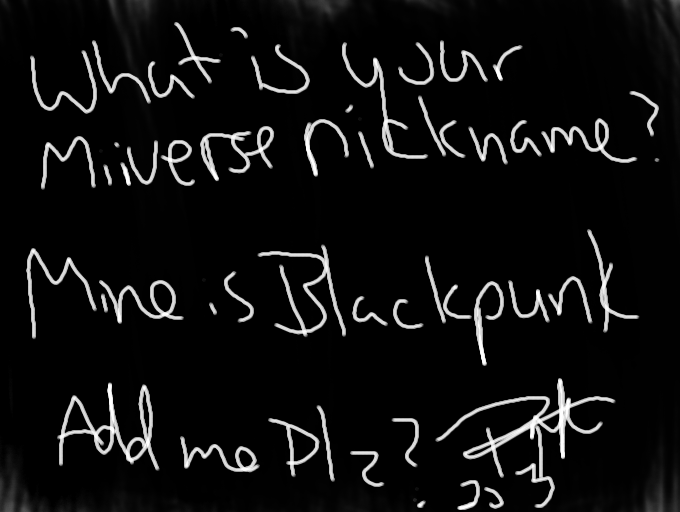 What is your
Miiverse nickname?
Mine is Blackpunk
Add me Plz?